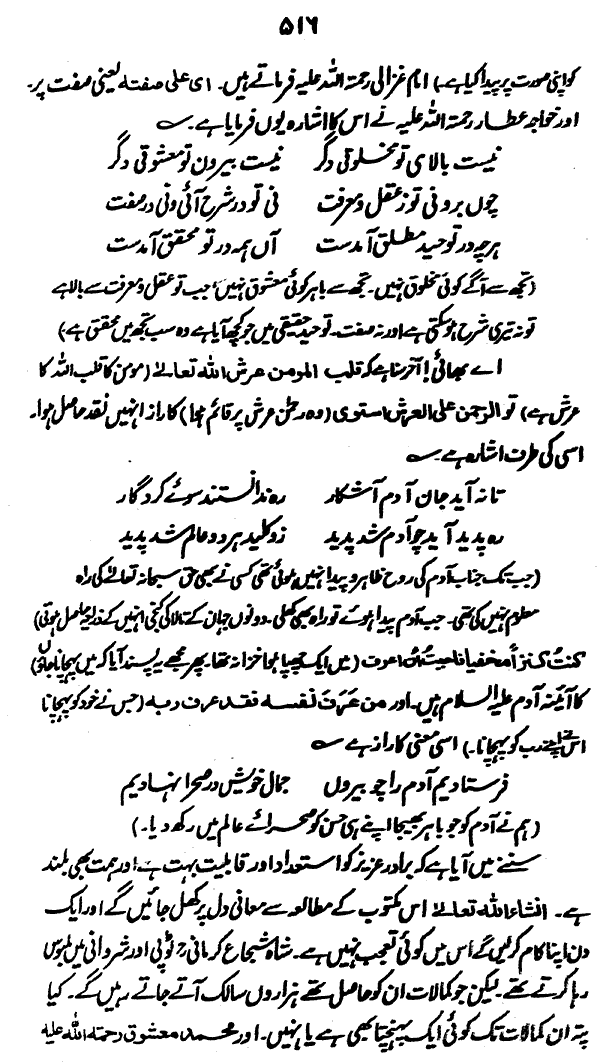 ۵۱۶
کو اپنی صورت پر پیدا کیا ہے۔) امام غزالی رحمۃ اللہ علیہ فرماتے ہیں۔ ای علی صفتہ یعنی صفت پر۔
اور خواجہ عطار رحمۃ اللہ علیہ نے اس کا اشارہ یوں فرمایا ہے۔
نیست بالای تو مخلوقی دگر نیست بیرون تو معشوقی دگر
چوں برونی تو ز عقل و معرفت نی تو در شرح آئی ونی در صفت
ہرچہ در توحید مطلق آمدست آں ہمہ در تو محقق آمدست
(تجھ سے آگے کوئی مخلوق نہیں۔ تجھ سے باہر کوئی معشوق نہیں، جب تو عقل و معرفت سے بالا ہے
تو نہ تیری شرح ہو سکتی ہے اور نہ صفت۔ توحید حقیقی میں جو کچھ آیا ہے وہ سب تجھ میں محقق ہے)
اے بھائی! آخر سنا ہے کہ قلب المومن عرش اللہ تعالےٰ (مومن کا قلب اللہ کا
عرش ہے) تو الرحمن علی العرش استوی (وہ رحمٰن عرش پر قائم ہوا) کا راز انہیں نقد حاصل ہوا۔
اسی کی طرف اشارہ ہے۔
تا نہ آید جان آدم آشکار رہ ندانستند سوئے کردگار
رہ پدید آید چو آدم شد پدید زو کلید ہر دو عالم شد پدید
(جب تک جناب آدم کی روح ظاہر و پیدا نہیں ہوئی تھی کسی نے بھی حق سبحانہ تعالےٰ کی راہ
معلوم نہیں کی تھی۔ جب آدم پیدا ہوئے تو راہ بھی کھلی۔ دونوں جہان کے تالا کی کنجی انہیں کے ذریعہ حاصل ہوتی)
کنت کنزاً مخفیا فاحببت ان اعرف (میں ایک چھپا ہوا خزانہ تھا۔ پھر مجھے یہ پسند آیا کہ میں پہچانا جاؤں)
کا آئینہ آدم علیہ السلام ہیں۔ اور من عرف نفسہ فقد عرف ربہ (جس نے خود کو پہچانا
اس نے اپنے رب کو پہچانا۔) اسی معنی کا راز ہے
فرستادیم آدم را چو بیروں جمال خویش در صحرا نہادیم
(ہم نے آدم کو جو باہر بھیجا اپنے ہی حسن کو صحرائے عالم میں رکھ دیا۔)
سننے میں آیا ہے کہ برادر عزیز کو استعداد اور قابلیت بہت ہے اور ہمت بھی بلند
ہے۔ انشاء اللہ تعالےٰ اس مکتوب کے مطالعہ سے معانی دل پر کھل جائیں گے اور ایک
دن اپنا کام کر لیں گے اس میں کوئی تعجب نہیں ہے۔ شاہ شجاع کرمانیؒ ٹوپی اور شروانی میں ملبوس
رہا کرتے تھے۔ لیکن جو کمالات ان کو حاصل تھے ہزاروں سالک آتے جاتے رہیں گے۔ کیا
پتہ ان کمالات تک کوئی ایک پہنچتا بھی ہے یا نہیں۔ اور محمد معشوق رحمۃ اللہ علیہ